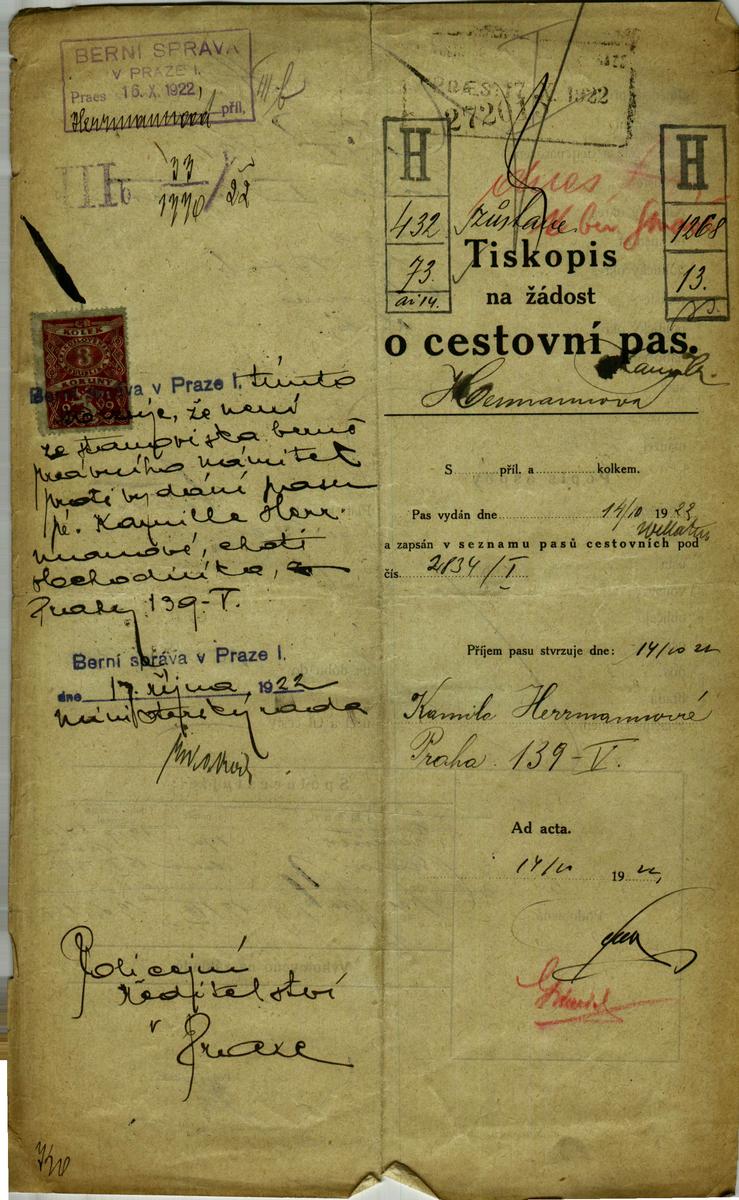 BERNÍ SPRÁVA
V PRAZE I.
Praes 16. X. 1922,
Herrmannová příl.
III b
III b 33
1770 / 22
ČR
KOLEK
3
KORUNY
Berní správa v Praze I. tímto
že není
ze stanoviska berně
právního námitek
proti vydání pasu
pí. Kamille Herr-
mannové, choti
obchodníka, z
Prahy 139-V.
Berní správa v Praze I.
dne 17. října, 1922
ministerský rada
Policejní
ředitelství
v Praze
PRAES. 17 1922
H
432
73.
H
1268
13.
dnes
zůstane
Tiskopis
na žádost
o cestovní pas.
Kamila
Herrmannová
S příl. a kolkem.
Pas vydán dne 14/10 1922
a zapsán v seznamu pasů cestovních pod
čís. 2134/I
Příjem pasu stvrzuje dne: 14/10 22
Kamila Herrmannová
Praha 139-V.
Ad acta.
14/10 19 22,